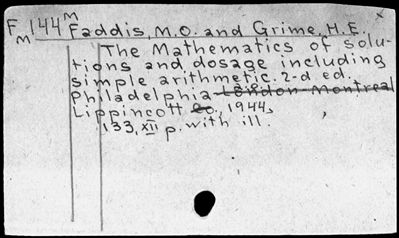 F M 144 M Faddis, M.O. and Grime, H.E.
The Mathematics of solu-
tions and dosage including
simple arithmetic. 2-d ed.
Philadelphia London Montreal
Lippincott Co., 1944,
133, XII p. with ill.